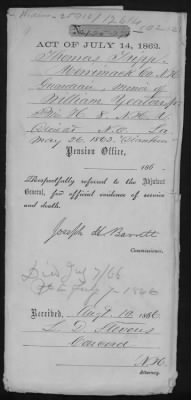 ACT OF JULY 14, 1862.
Thomas Tripp
Merrimack Co. N.H.
Guardian, minor of
William
H 8 N.H. V.
Died at N.O. La
May 26. 1863.
Pension Office,
186 .
Respectfully referred to the Adjutant
General, for official evidence of service
and death.
Joseph H. Barrett
Commissioner.
7/66
7 1866
Received, Augt 10 1866.
L. D. Stevens
Concord
N.H.
Attorney.